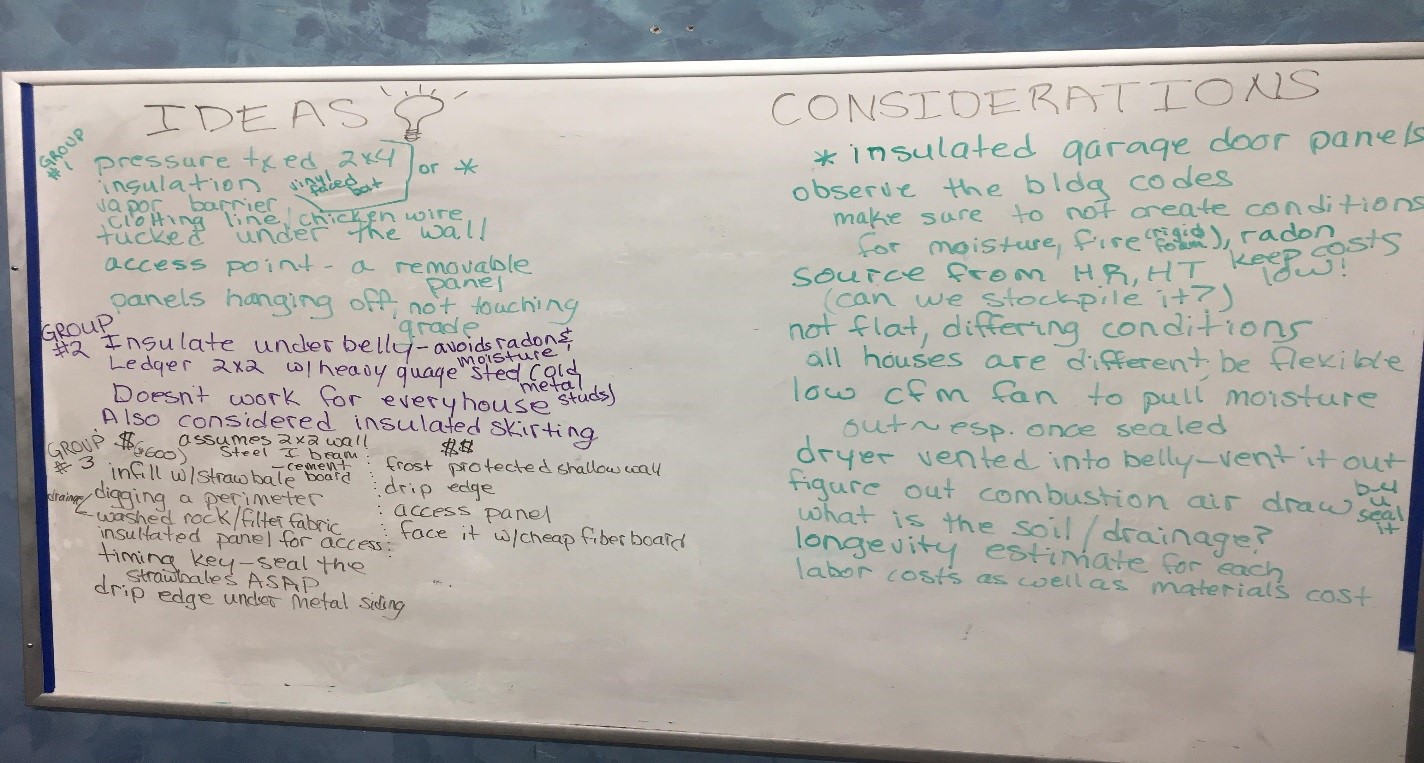 IDEAS
GROUP #1
pressure txed 2x4
insulation vinyl faced bat
or *
vapor barrier
clothing line/chicken wire
tucked under the wall
access point - a removable
panel
panels hanging off, not touching
grade
GROUP #2
Insulate underbelly - avoids radon &
moisture
Ledger 2x2 w/heavy guage sted (cold
metal
studs)
Doesn't work for everyhouse
Also considered insulated skirting
GROUP #3
$ ($600)
assumes 2x2 wall
Steel I beam
infill w/strawbale - cement
board
drainage
digging a perimeter
washed rock/filter fabric
insultated panel for access
timing key - seal the
strawbales ASAP
drip edge under metal siding
$$
frost protected shallow wall
drip edge
access panel
face it w/cheap fiberboard
CONSIDERATIONS
* insulated garage door panels
observe the bldg codes
make sure to not create conditions
for moisture, fire (rigid foam), radon
source from HR, HT keep costs
low!
(can we stockpile it?)
not flat, differing conditions
all houses are different, be flexible
low cfm fan to pull moisture
out ~ esp. once sealed
dryer vented into belly - vent it out
figure out combustion air draw b4
u
seal
it
what is the soil/drainage?
longevity estimate for each
labor costs as well as materials cost